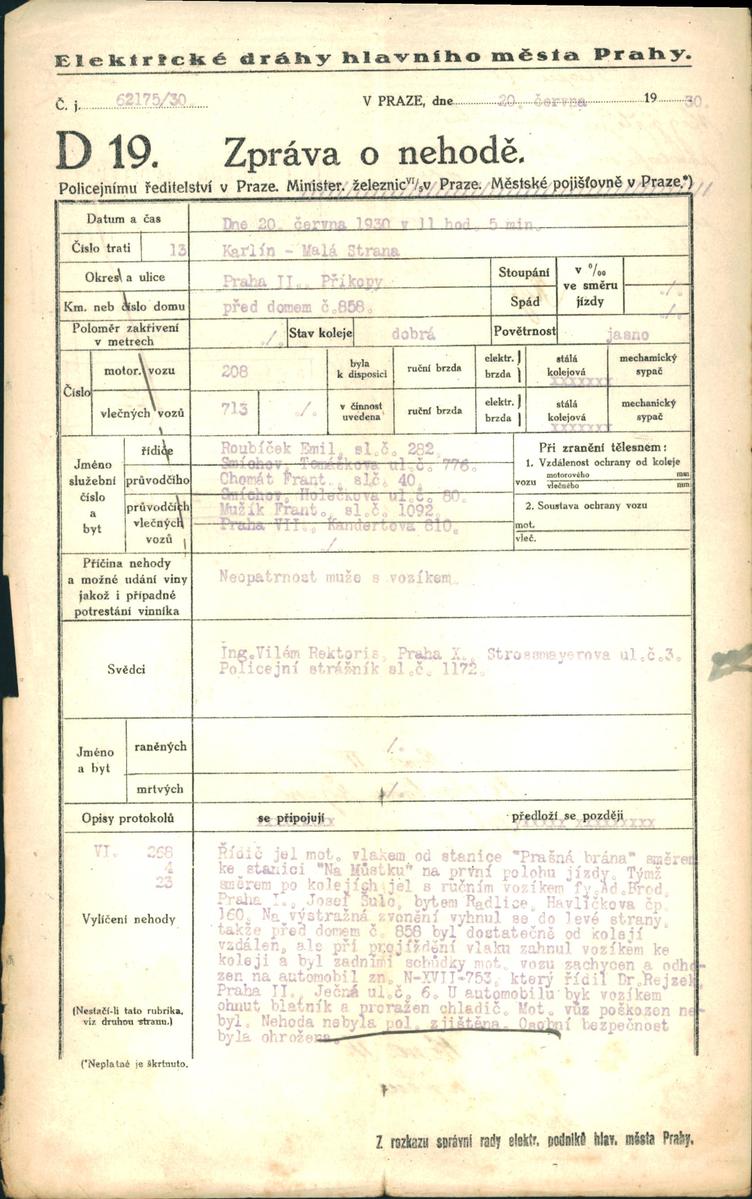 Elektrické dráhy hlavního města Prahy.
Č. j. 62175/30 V PRAZE, dne 20. června 19 30.
D 19. Zpráva o nehodě.
Policejnímu ředitelství v Praze. Minister. železnic VI/5 v Praze. Městské pojišťovně v Praze.*)
Datum a čas Dne 20. června 1930 v 11 hod. 5 min.
Číslo trati 13 Karlín - Malá Strana
Okres a ulice Praha II., Příkopy Stoupání v ‰ ve směru jízdy ./.
Km. neb číslo domu před domem č.858. Spád ./.
Poloměr zakřivení v metrech ./. Stav koleje dobrá Povětrnost jasno
Číslo motor. vozu 208 byla k disposici ruční brzda elektr. brzda } stálá kolejová xxxxxxx mechanický sypač
vlečných vozů 713 ./. v činnost uvedena ruční brzda elektr. brzda } stálá kolejová xxxxxxx mechanický sypač
Jméno služební číslo a byt
řidiče Roubíček Emil, sl.č. 282,
Smíchov, Tomáškova ul.č. 776.
průvodčího Chomát Frant., slč. 40,
Smíchov, Holečkova ul.č. 80.
průvodčích vlečných vozů Mužík Frant., sl.č. 1092,
Praha VII., Kandertova 810.
./
Při zranění tělesném:
1. Vzdálenost ochrany od koleje
vozu motorového mm
vlečného mm
2. Soustava ochrany vozu
mot.
vleč.
Příčina nehody
a možné udání viny
jakož i případné
potrestání vinníka
Neopatrnost muže s vozíkem.
Svědci
Ing.Vilém Rektoris, Praha X., Strossmayerova ul.č.3.
Policejní strážník sl.č. 1172.
Jméno a byt
raněných ./.
mrtvých ./.
Opisy protokolů se připojují předloží se později
VI. 268
4
23
Vylíčení nehody
(Nestačí-li tato rubrika,
viz druhou stranu.)
Řidič jel mot. vlakem od stanice "Prašná brána" směrem
ke stanici "Na Můstku" na první polohu jízdy. Týmž
směrem po kolejích jel s ručním vozíkem fy.Ad.Brod,
Praha I., Josef Šulc, bytem Radlice, Havlíčkova čp.
160. Na výstražná zvonění vyhnul se do levé strany,
takže před domem č. 858 byl dostatečně od kolejí
vzdálen, ale při projíždění vlaku zahnul vozíkem ke
koleji a byl zadními schůdky mot. vozu zachycen a odho-
zen na automobil zn. N-XVII-753, který řídil Dr.Rejzek,
Praha II., Ječná ul.č. 6. U automobilu byk vozíkem
ohnut blatník a proražen chladič. Mot. vůz poškozen ne-
byl. Nehoda nebyla pol. zjištěna. Osobní bezpečnost
byla ohrožena.
(*Neplatné je škrtnuto.
Z rozkazu správní rady elektr. podniků hlav. města Prahy.